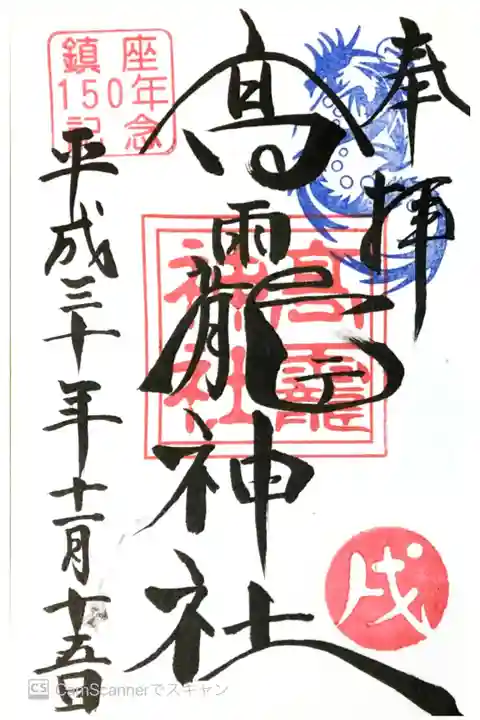 奉拝
髙靇神社
高靇
神社
平成三十年十一月十五日
鎮座
150年
記念
戌
CS CamScannerでスキャン